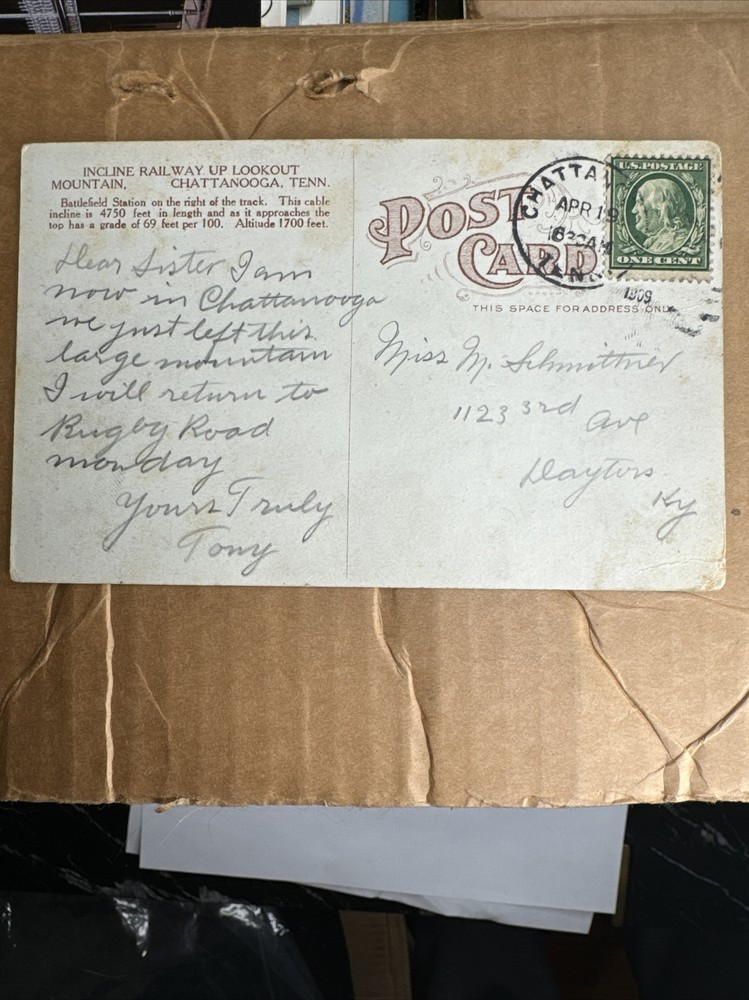 INCLINE RAILWAY UP LOOKOUT
MOUNTAIN, CHATTANOOGA, TENN.
Battlefield Station on the right of the track. This cable
incline is 4750 feet in length and as it approaches the
top has a grade of 69 feet per 100. Altitude 1700 feet.
Dear Sister I am
now in Chattanooga
we just left this
large mountain
I will return to
Rugby Road
monday
Yours Truly
Tony
POST
CARD
CHATTAN
APR 18
630 AM
TENN.
1909
U.S. POSTAGE
ONE CENT
THIS SPACE FOR ADDRESS ONLY
Miss M. Schmittner
1123 3rd Ave
Dayton
Ky